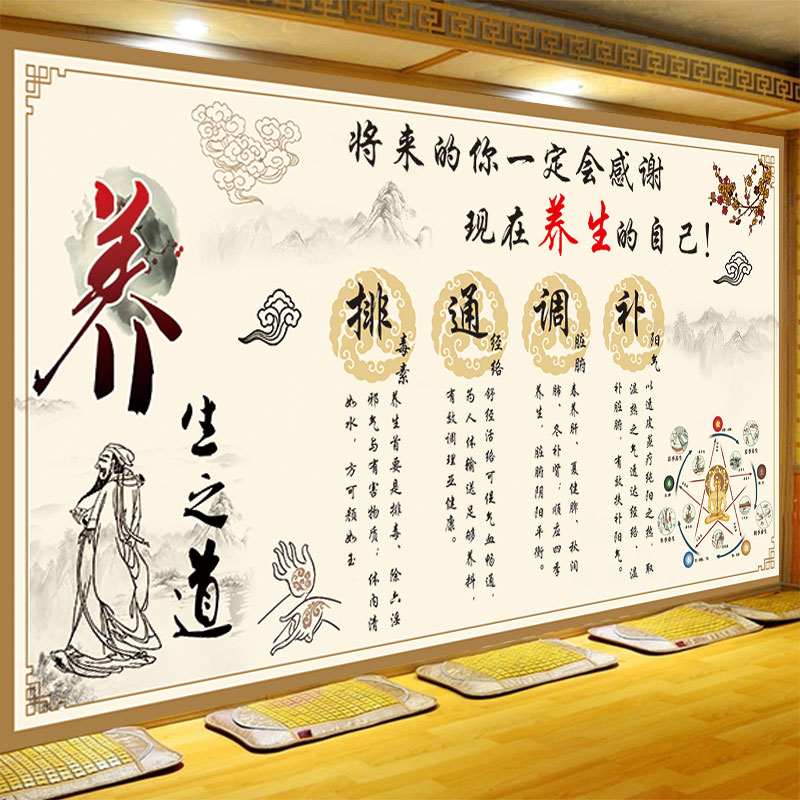 养
生之道
将来的你一定会感谢
现在养生的自己!
排毒素
养生首要是排毒、除六淫
邪气与有害物质;体内清
如水,方可颜如玉
通经络
舒经活络可使气血畅通,
为人体输送足够养料,
有效调理亚健康。
调脏腑
春养肝、夏健脾、秋润
肺、冬补肾;顺应四季
养生,脏腑阴阳平衡。
补阳气
以透皮蒸疗纯阳之热,取
温热之气透达经络、温
补脏腑,有效扶补阳气。